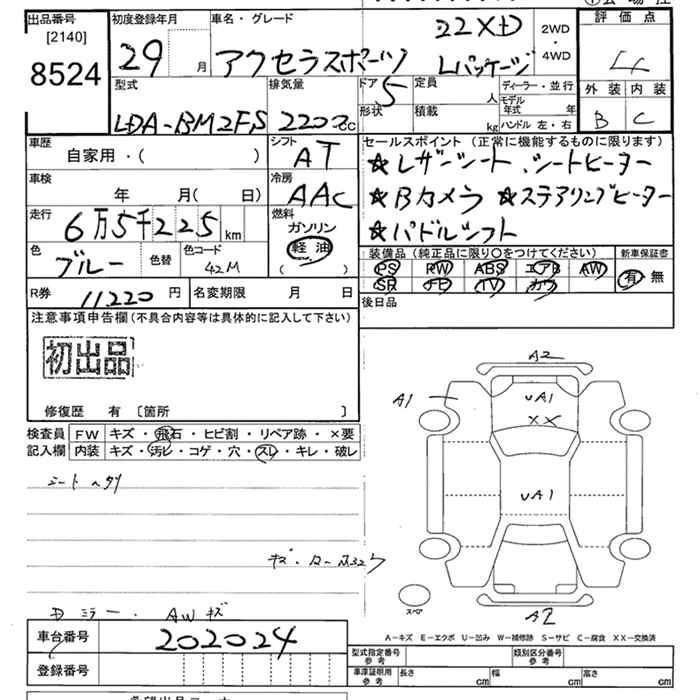 出品番号 初度登録年月 車名・グレード 22XD 2WD・4WD 評価点
[2140]
8524 29 月 アクセラスポーツ Lパッケージ 4
型式 排気量 ドア 5 定員 人 ディーラー・並行 外装 内装
LDA-BM2FS 2200cc 形状 積載 kg モデル年式 年 B C
ハンドル 左・右
車歴 シフト セールスポイント (正常に機能するものに限ります)
自家用・( ) AT ★レザーシート.シートヒーター
車検 冷房 ★Bカメラ ★ステアリングヒーター
年 月( 日) AAC ★パドルシフト
走行 燃料
6万5千225km ガソリン
軽油
( )
色 色替 色コード 装備品 (純正品に限り○をつけてください) 新車保証書
ブルー 42M PS PW ABS エアB AW 有・無
SR TV
R券 11220円 名変期限 月 日 後日品
注意事項申告欄 (不具合内容等は具体的に記入して下さい)
初出品
修復歴 有 [箇所 ]
検査員 FW キズ・飛石・ヒビ割・リペア跡・×要
記入欄 内装 キズ・汚レ・コゲ・穴・スレ・キレ・破レ
シートヘタリ
Dミラー. AWキズ
A2
A1
UA1
XX
UA1
スペア
A2
A-キズ E-エクボ U-凹み W-補修跡 S-サビ C-腐食 XX-交換済
車台番号 202024
登録番号
型式指定番号 参考 類別区分番号 参考
車庫証明用 参考 長さ cm 幅 cm 高さ cm